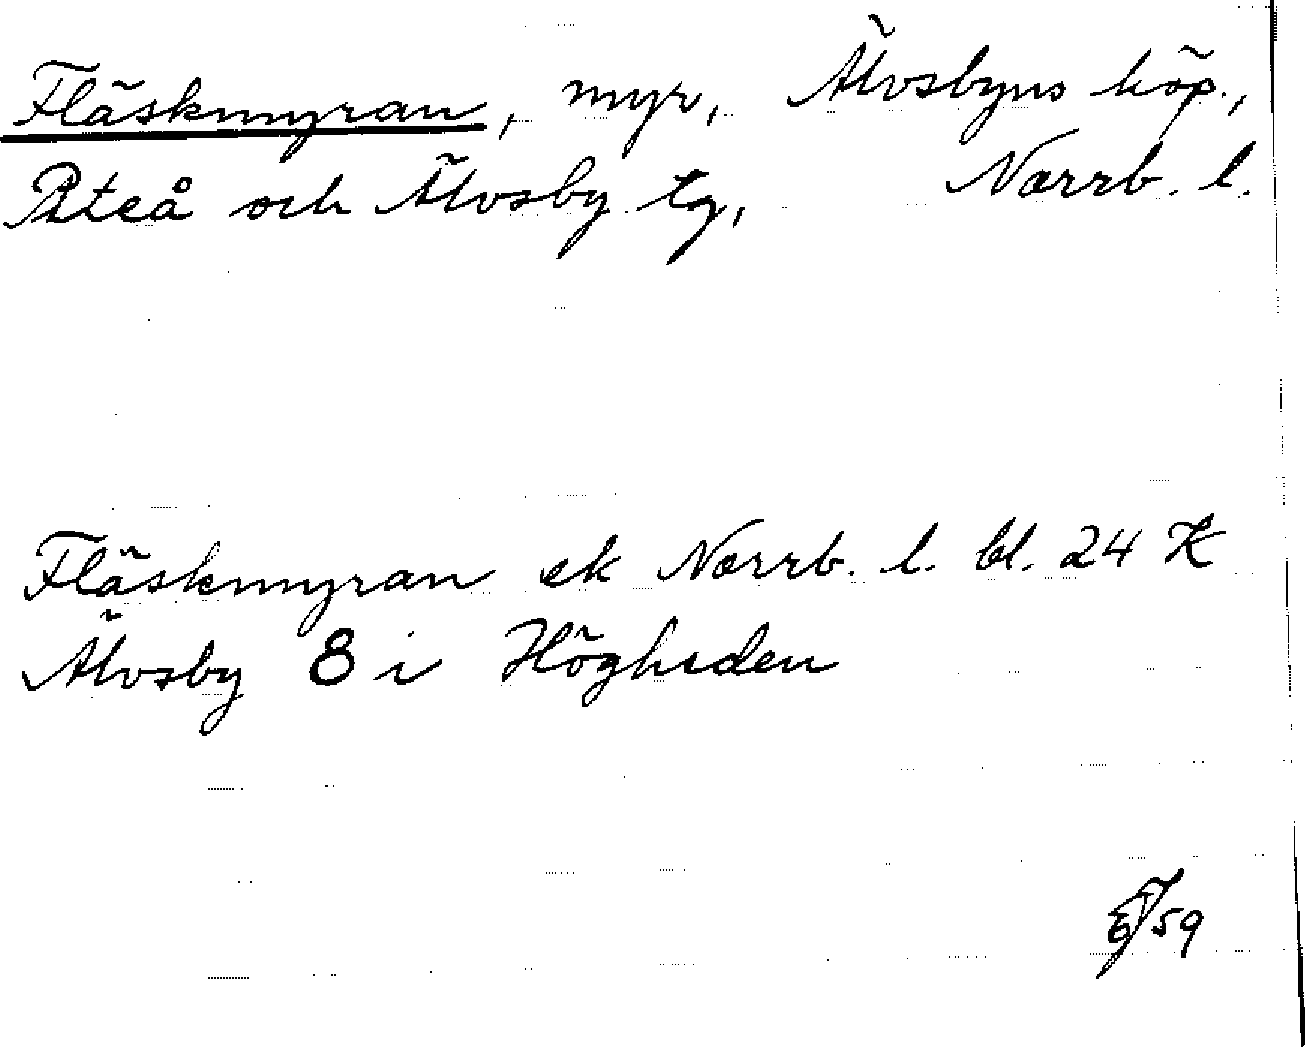 Fläskmyran, myr, Älvsbyns köp.,
Piteå och Älvsby tg, Norrb. l.
Fläskmyran ek Norrb. l. bl. 24 K
Älvsby 8 i Högheden
/59